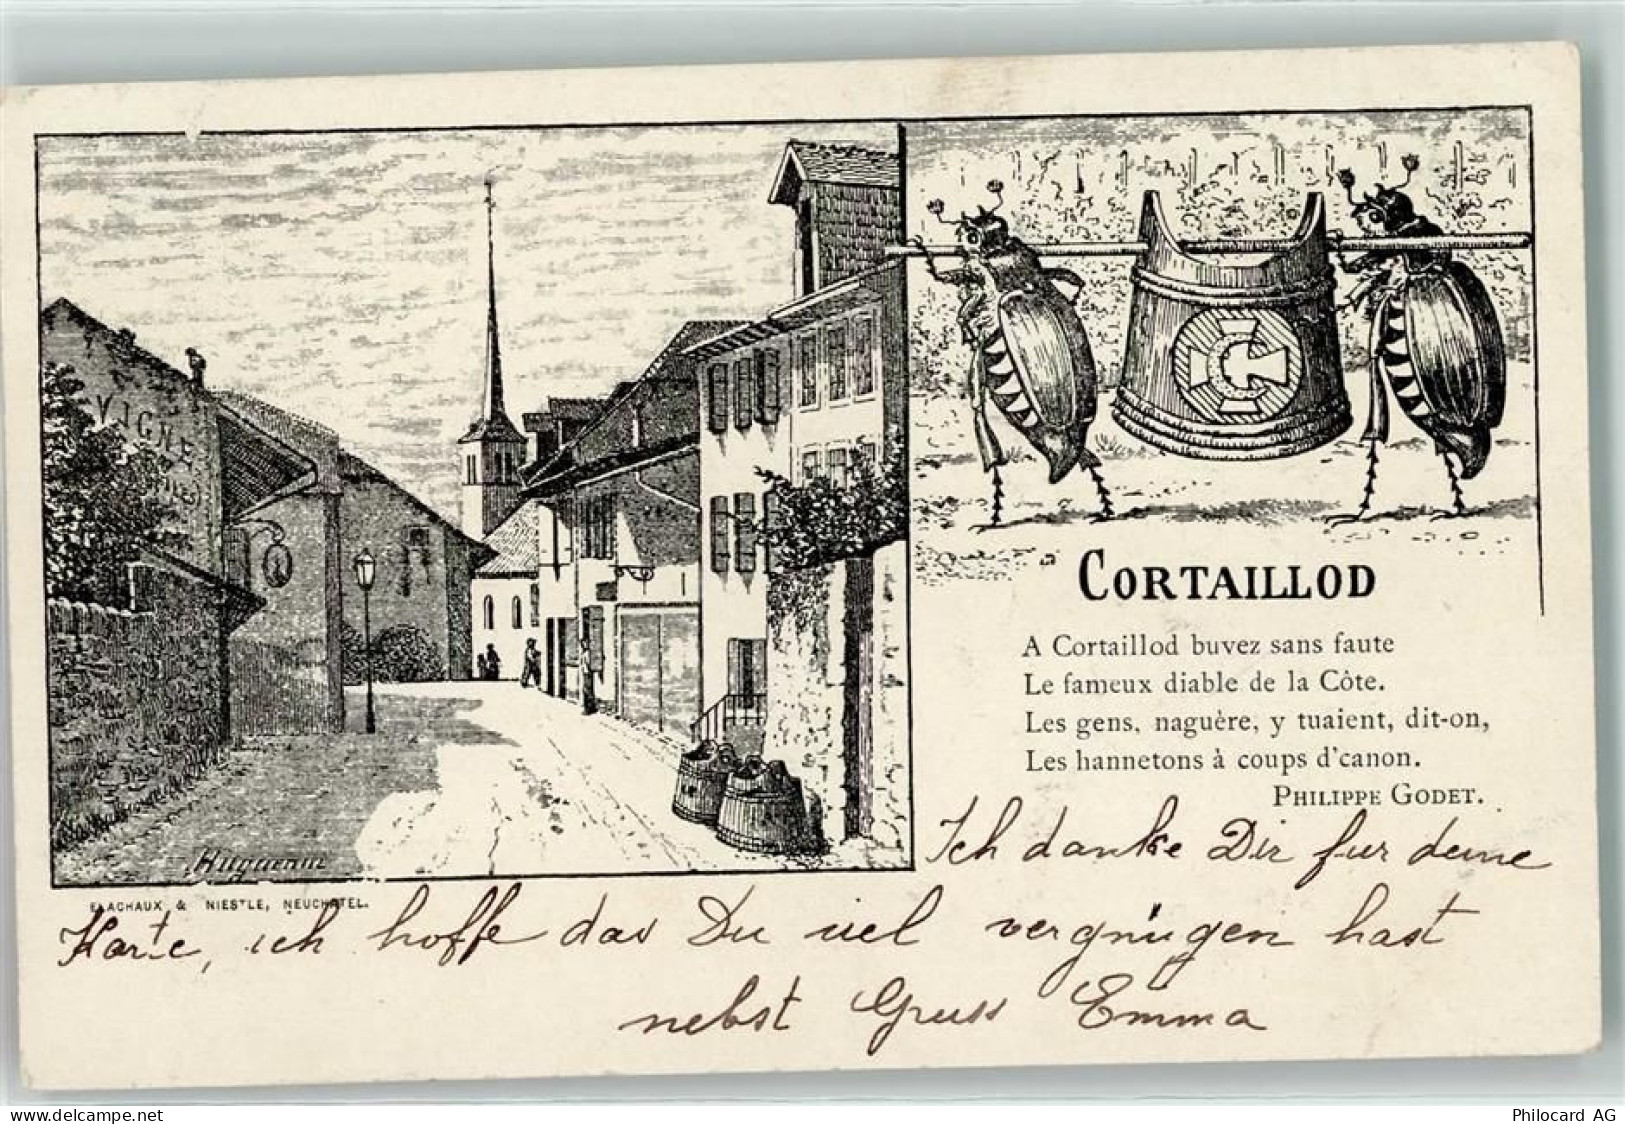 VIGNE
Huguenin
CORTAILLOD
A Cortaillod buvez sans faute
Le fameux diable de la Côte.
Les gens, naguère, y tuaient, dit-on,
Les hannetons à coups d'canon.
PHILIPPE GODET.
& NIESTLE, NEUCHATEL.
Ich danke Dir fur deine
Karte, ich hoffe das Du viel vergnügen hast
nebst Gruss Emma
www.delcampe.net
Philocard AG